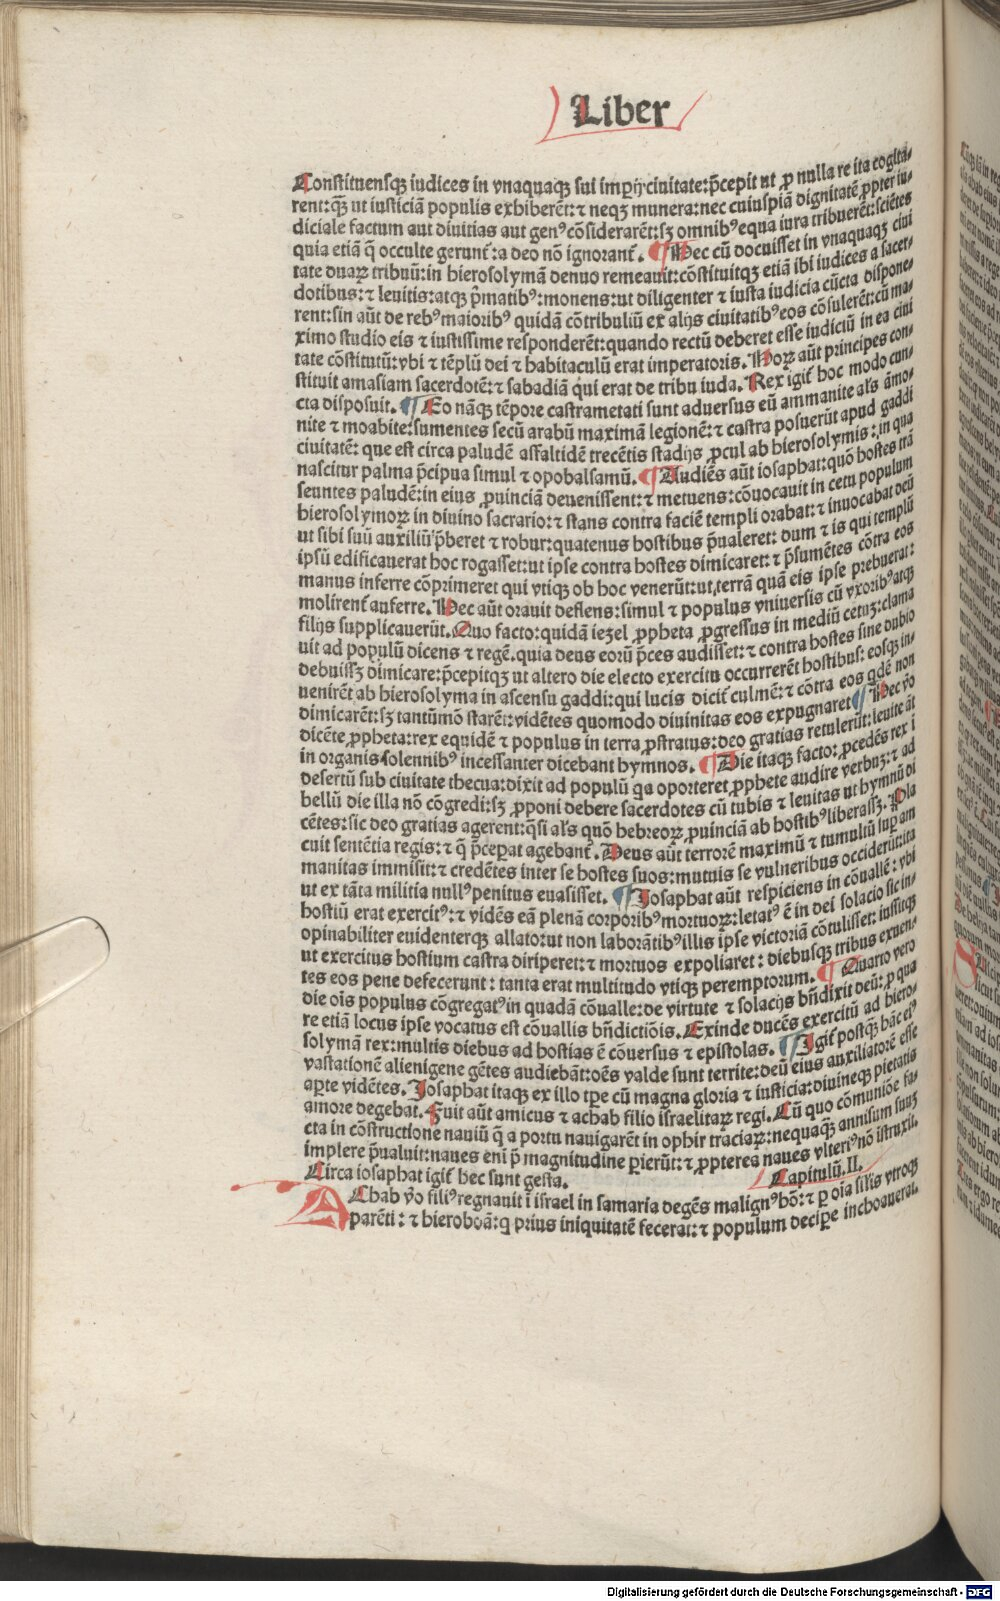 Liber
Constituensqꝫ iudices in vnaquaqꝫ sui imperij ciuitate: p̄cepit ut ꝓ nulla re ita cogita-
rent: qꝫ ut iusticiā populis exhiberēt: ⁊ neqꝫ munera: nec cuiuspiā dignitatē ꝓpter iu-
diciale factum aut diuitias aut genꝰ cōsiderarēt: sꝫ omnibꝰ equa iura tribuerēt: sciētes
quia etiā q̄ occulte gerunt̄: a deo nō ignorant̄. ¶ Hec cū docuisset in vnaquaqꝫ ciui
tate duaꝝ tribuū: in hierosolymā denuo remeauit: cōstituitqꝫ etiā ibi iudices a sacer-
dotibus: ⁊ leuitis: atqꝫ p̄matibꝰ: monens: ut diligenter ⁊ iusta iudicia cūcta dispone-
rent: sin aūt de rebꝰ maioribꝰ quidā cōtribuliū ex alijs ciuitatibꝰ eos cōsulerēt: cū ma-
ximo studio eis ⁊ iustissime responderēt: quando rectū deberet esse iudiciū in ea ciui
tate cōstitutū: vbi ⁊ tēplū dei ⁊ habitaculū erat imperatoris. Hoꝝ aūt principes con-
stituit amasiam sacerdotē: ⁊ sabadiā qui erat de tribu iuda. Rex igit̄ hoc modo cun-
cta disposuit. ¶ Eo nāqꝫ tēpore castrametati sunt aduersus eū ammanite als āmo-
nite ⁊ moabite: sumentes secū arabū maximā legionē: ⁊ castra posuerūt apud gaddi
ciuitatē: que est circa paludē asfaltidē trecētis stadijs ꝓcul ab hierosolymis: in qua
nascitur palma p̄cipua simul ⁊ opobalsamū. ¶ Audiēs aūt iosaphat: quō hostes trā
seuntes paludē: in eius ꝓuinciā deuenissent: ⁊ metuens: cōuocauit in cetu populum
hierosolymoꝝ in diuino sacrario: ⁊ stans contra faciē templi orabat: ⁊ inuocabat deū
ut sibi suū auxiliū p̄beret ⁊ robur: quatenus hostibus p̄ualeret: dum ⁊ is qui templū
ipsū edificauerat hoc rogasset: ut ipse contra hostes dimicaret: ⁊ p̄sumētes cōtra eos
manus inferre cōprimeret qui vtiqꝫ ob hoc venerūt: ut terrā quā eis ipse prebuerat:
molirent̄ auferre. Hec aūt orauit deflens: simul ⁊ populus vniuersis cū vxoribꝰ atqꝫ
filijs supplicauerūt. Quo facto: quidā iezel ꝓpheta ꝓgressus in mediū cetuꝫ: clama
uit ad populū dicens ⁊ regē. quia deus eorū p̄ces audisset: ⁊ contra hostes sine dubio
debuissꝫ dimicare: p̄cepitqꝫ ut altero die electo exercitu occurrerēt hostibus: eosqꝫ in-
uenirēt ab hierosolyma in ascensu gaddi: qui lucis dicit̄ culmē: ⁊ cōtra eos qdē non
dimicarēt: sꝫ tantūmō starēt: vidētes quomodo diuinitas eos expugnaret ¶ Hec v̄o
dicēte ꝓpheta: rex equidē ⁊ populus in terra ꝓstratus: deo gratias retulerūt: leuite āt
in organis solennibꝰ incessanter dicebant hymnos. ¶ Die itaqꝫ facto: ꝓcedēs rex ī
desertū sub ciuitate thecua: dixit ad populū qa oporteret ꝓphete audire verbuꝫ: ⁊ ad
bellū die illa nō cōgredi: sꝫ ꝓponi debere sacerdotes cū tubis ⁊ leuitas ut hymnū di
cētes: sic deo gratias agerent: qsi als quō hebreoꝝ ꝓuinciā ab hostibꝰ liberassꝫ. Pla
cuit sentētia regis: ⁊ q̄ p̄ceꝑat agebant̄. Deus aūt terrorē maximū ⁊ tumultū suꝑ am
manitas immisit: ⁊ credētes inter se hostes suos: mutuis se vulneribus occiderūt: ita
ut ex tāta militia nullꝰ penitus euasisset. ¶ Iosaphat aūt respiciens in cōuallē: vbi
hostiū erat exercitꝰ: ⁊ vidēs eā plenā corporibꝰ mortuoꝝ: letatꝰ ē in dei solacio sic in-
opinabiliter euidenterqꝫ allato: ut non laborātibꝰ illis ipse victoriā cōtulisset: iussitqꝫ
ut exercitus hostium castra diriperet: ⁊ mortuos expoliaret: diebusqꝫ tribus exuen-
tes eos pene defecerunt: tanta erat multitudo vtiqꝫ peremptorum. ¶ Quarto vero
die oīs populus cōgregatꝰ in quadā cōualle: de virtute ⁊ solacijs bn̄dixit deū: ꝓ qua
re etiā locus ipse vocatus est cōuallis bn̄dictiōis. Exinde ducēs exercitū ad hiero-
solymā rex: multis diebus ad hostias ē cōuersus ⁊ epistolas. ¶ Igit̄ postqꝫ hāc eiꝰ
vastationē alienigene gētes audiebāt: oēs valde sunt territe: deū eius auxiliatorē esse
aꝑte vidētes. Iosaphat itaqꝫ ex illo tꝑe cū magna gloria ⁊ iusticia: diuineqꝫ pietatis
amore degebat. Fuit aūt amicus ⁊ achab filio israelitaꝝ regi. Cū quo cōmuniōe fa-
cta in cōstructione nauiū q̄ a portu nauigarēt in ophir traciaꝝ: nequaqꝫ annisum suuꝫ
implere p̄ualuit: naues eni p̄ magnitudine ꝑierūt: ⁊ ꝓpterea naues vlteriꝰ nō istruxit.
Circa iosaphat igit̄ hec sunt gesta. Capitulū. II.
AChab v̄o filiꝰ regnauit ī israel in samaria degēs malignꝰ hō: ⁊ ꝑ oīa sīlis vtroqꝫ
parēti: ⁊ hieroboā: q prius iniquitatē fecerat: ⁊ populum deciꝑe inchoauerat.
Digitalisierung gefördert durch die Deutsche Forschungsgemeinschaft - DFG